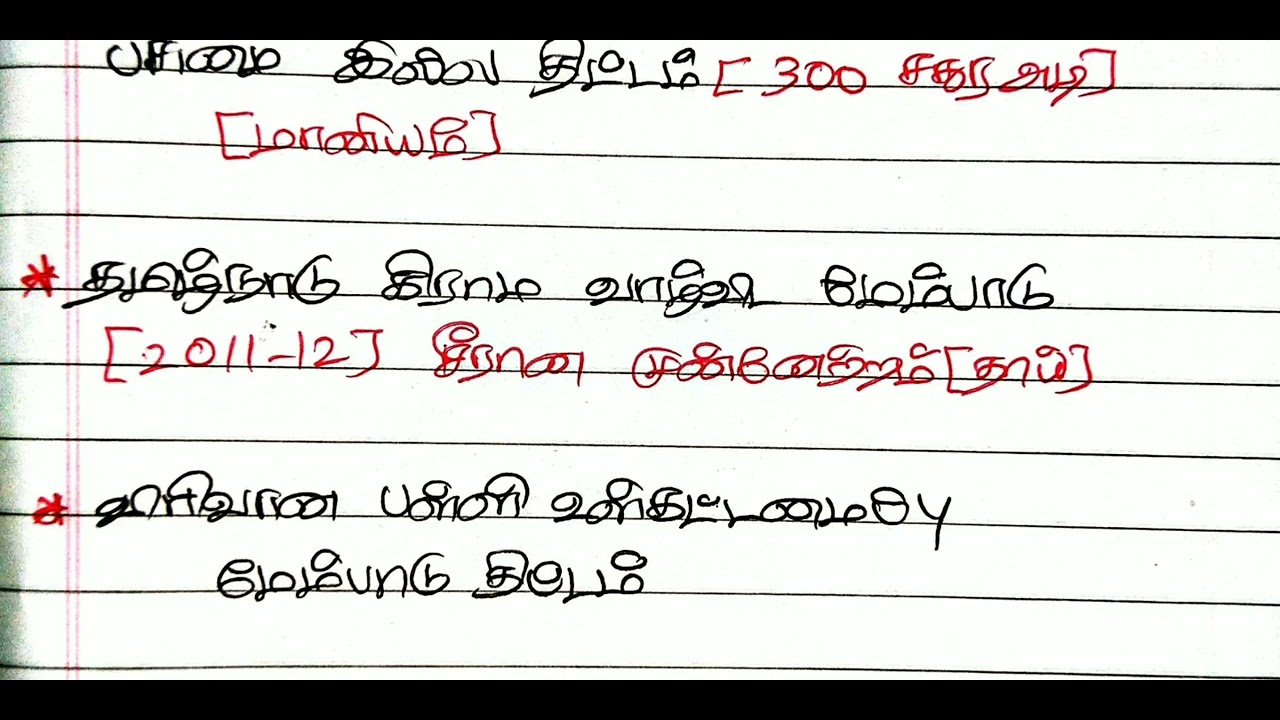 பசுமை இல்ல திட்டம் [300 சதுர அடி]
[மானியம்]
* தமிழ்நாடு கிராம வாழ்விட மேம்பாடு
[2011-12] சீரான முன்னேற்றம் [தாய்]
* விரிவான பள்ளி உள்கட்டமைப்பு
மேம்பாடு திட்டம்